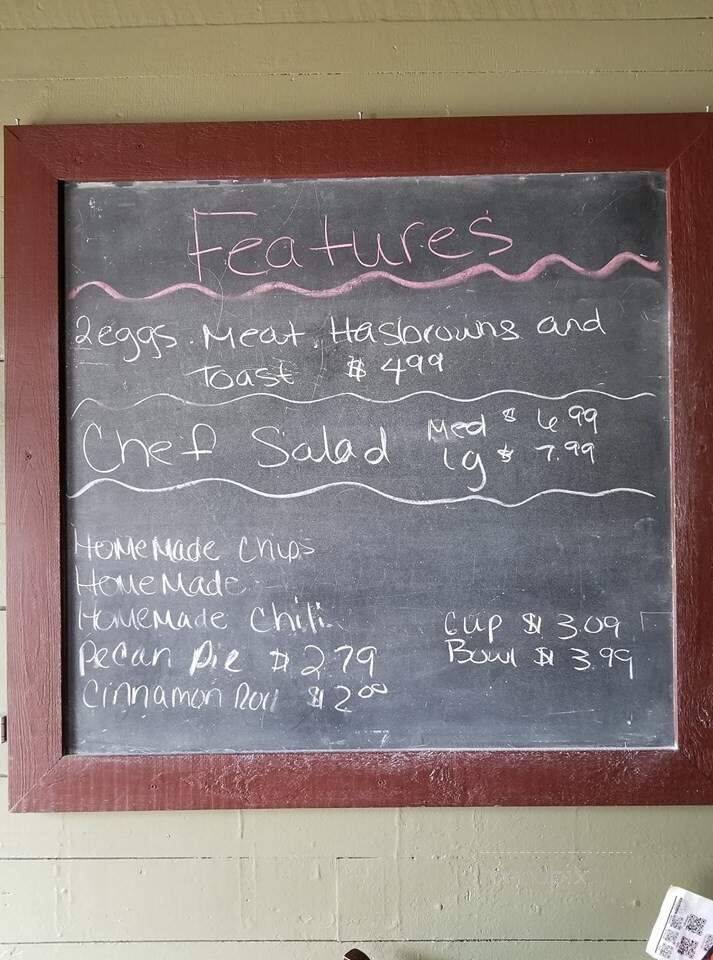 Features
2eggs. Meat. Hasbrowns and
Toast $ 4.99
Chef Salad Med $ 6.99
lg $ 7.99
HomeMade Chips
HomeMade
HomeMade Chili Cup $ 3.09
Pecan Pie $ 2.79 Bowl $ 3.99
Cinnamon Roll $ 2.00